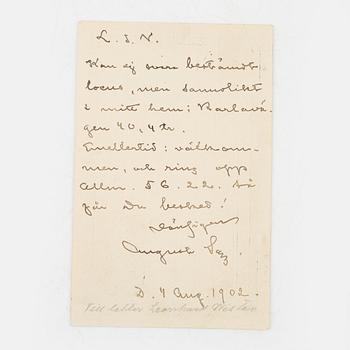 L. S. N.
Kan ej svara bestämdt
locus, men sannolikt
i mitt hem: Karlavä-
gen 40, 4 tr.
Emellertid: välkom-
men, och ring opp
Allm. 56.22. så
får Du besked!
August
D. 4 Aug. 1902.
Till Leonhard